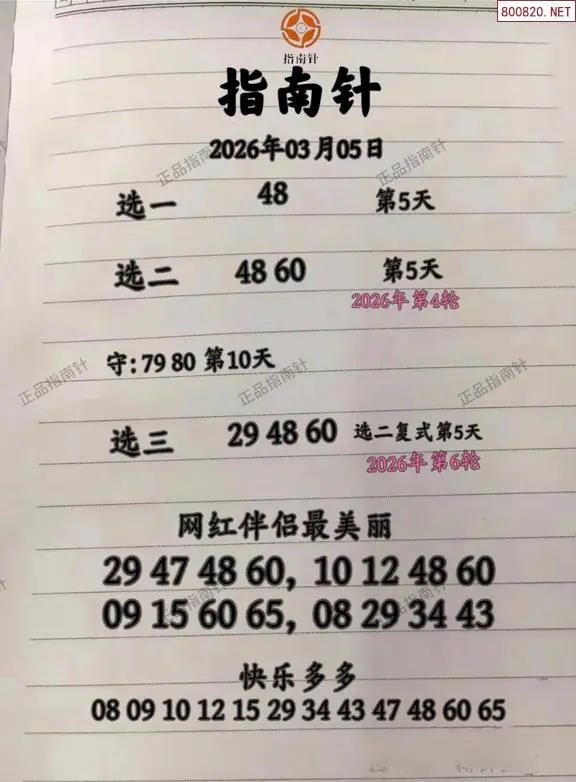 800820.NET
指南针
指南针
2026年03月05日
正品指南针 正品指南针
选一 48 第5天
选二 48 60 第5天
2026年 第4轮
守: 79 80 第10天
正品指南针 正品指南针 正品指南针
选三 29 48 60 选二复式第5天
2026年 第6轮
网红伴侣最美丽
29 47 48 60, 10 12 48 60
09 15 60 65, 08 29 34 43
正品指南针 正品指南针
快乐多多
08 09 10 12 15 29 34 43 47 48 60 65